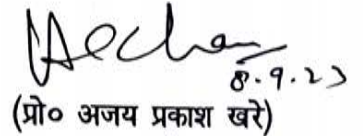 8.9.23
(प्रो० अजय प्रकाश खरे)